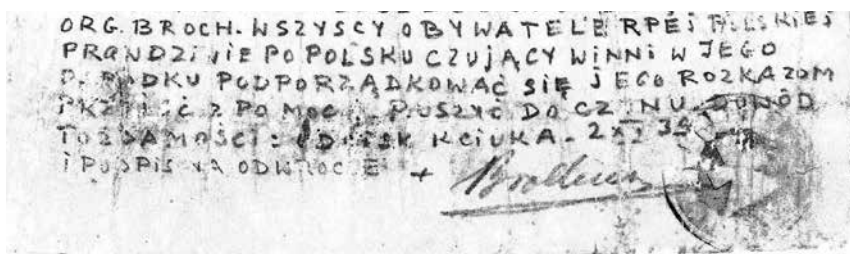 ORG. BROCH. WSZYSCY OBYWATELE RPEJ POLSKIEJ
PRAWDZIWIE PO POLSKU CZUJĄCY WINNI W JEGO
PODPORZĄDKOWAĆ SIĘ JEGO ROZKAZOM
Z POMOCĄ RUSZYĆ DO CZYNU. DOWÓD
TOŻSAMOŚCI: ODCISK KCIUKA - 2 XI 39
I PODPIS NA ODWROCIE +